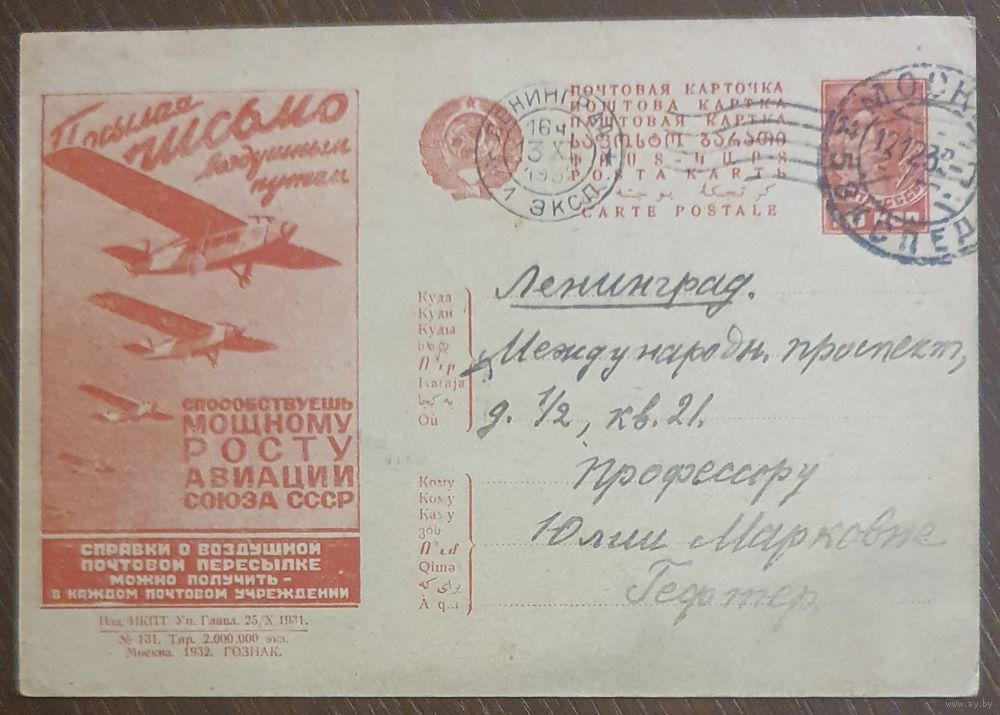 Посылая
письмо
воздушным
путем
СПОСОБСТВУЕШЬ
МОЩНОМУ
РОСТУ
АВИАЦИИ
СОЮЗА СССР
СПРАВКИ О ВОЗДУШНОЙ
ПОЧТОВОЙ ПЕРЕСЫЛКЕ
МОЖНО ПОЛУЧИТЬ -
В КАЖДОМ ПОЧТОВОМ УЧРЕЖДЕНИИ
Изд. НКПТ Уп. Главл. 25/X 1931.
№ 131. Тир. 2.000.000 экз.
Москва. 1932. ГОЗНАК.
ПОЧТОВАЯ КАРТОЧКА
ПОШТОВА КАРТКА
ПАШТОВАЯ КАРТКА
ՓՈՍՏ-ՔԱՐՏ
POSTA KARTЬ
CARTE POSTALE
16ч
13 X
1 ЭКСП
Куда
Куди
Куды
Haraja
Où
Ленинград.
Международн. проспект,
д. 1/2, кв. 21.
Кому
Кому
Каму
Qimə
برای که
À q
Профессору
Юлии Марковне
Гефтер
www.ay.by